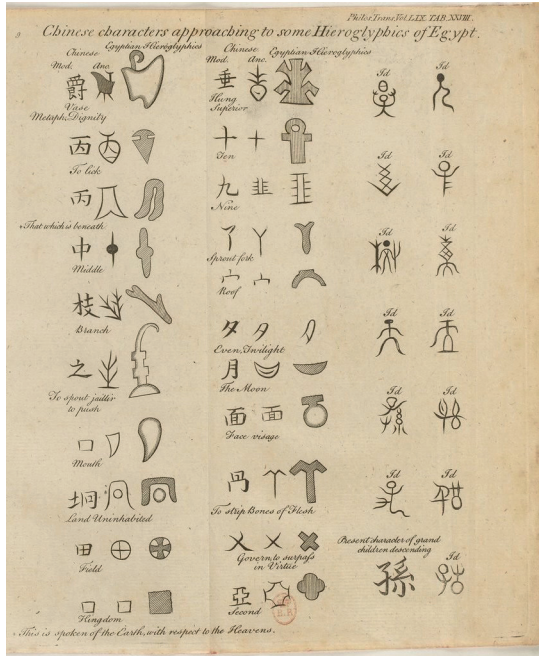 Philos. Trans. Vol. LIX. TAB. XXVIII.
Chinese characters approaching to some Hieroglyphics of Egypt.
Chinese Egyptian Hieroglyphics
Mod. Anc.
爵
Vase
Metaph. Dignity
㐁
To lick
丙
*That which is beneath
中
Middle
枝
Branch
之
To spout jaillir
to push
口
Mouth
坰
Land Uninhabited
田
Field
囗
Kingdom
*This is spoken of the Earth, with respect to the Heavens.
Chinese Egyptian Hieroglyphics
Mod. Anc.
垂
Hung
Superior
十
Ten
九
Nine
丫
Sprout fork
宀
Roof
夕
Even, Twilight
月
The Moon
面
Face visage
冎
To strip Bones of Flesh
㐅
Govern, to surpass
in Virtue
亞
Second
Id Id
Id Id
Id Id
Id Id
Id Id
Id Id
Present character of grand
children descending
孫 Id